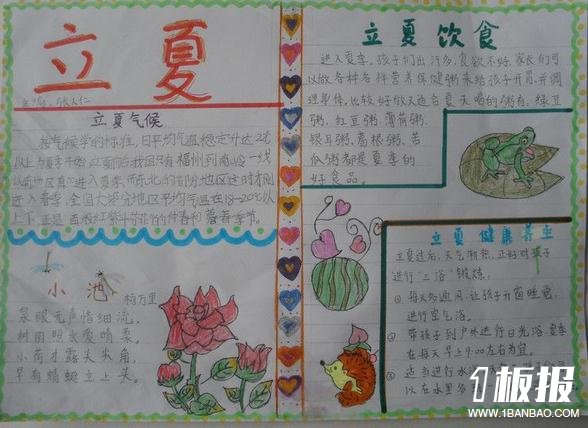 立夏
立夏气候
按气候学的标准，日平均气温稳定升达22℃
以上为夏季开始，立夏前后，我国只有福州到南岭一线
以南地区真正进入夏季，而东北的部分地区这时才刚
进入春季，全国大部分地区平均气温在18~20℃以
上下，正是
的仲春和暮春季节。
小池
杨万里
泉眼无声惜细流，
树阴照水爱晴柔。
小荷才露尖尖角，
早有蜻蜓立上头。
立夏饮食
进入夏季，孩子们出汗多，食欲不好，家长们可
以做各种各样营养保健粥来给孩子开胃，并调
理身体，比较好做又适合夏天喝的粥有：绿豆
粥、红豆粥、薄荷粥、
银耳粥、葛根粥、苦
瓜粥都是夏季的
好食品。
立夏健康养生
立夏过后，天气渐热，正好对孩子
进行“三浴”锻炼。
① 每天勤通风，让孩子开窗睡觉，
进行空气浴。
② 带孩子到户外进行日光浴，夏季
在每天早上9:00左右为宜。
③ 适当进行水浴
以在水里
1板报
WWW.1BANBAO.COM